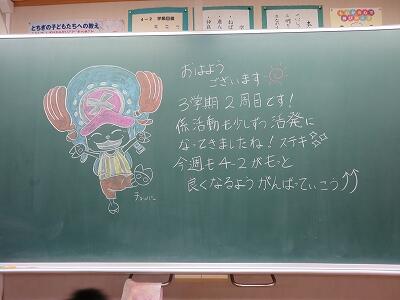 とちぎの子どもたちへの教え
おはよう
ございます
3学期2周目です！
係活動も少しずつ活発に
なってきましたね！ステキ
今週も4-2がもっと
良くなるようがんばっていこう↑↑
チョッパー